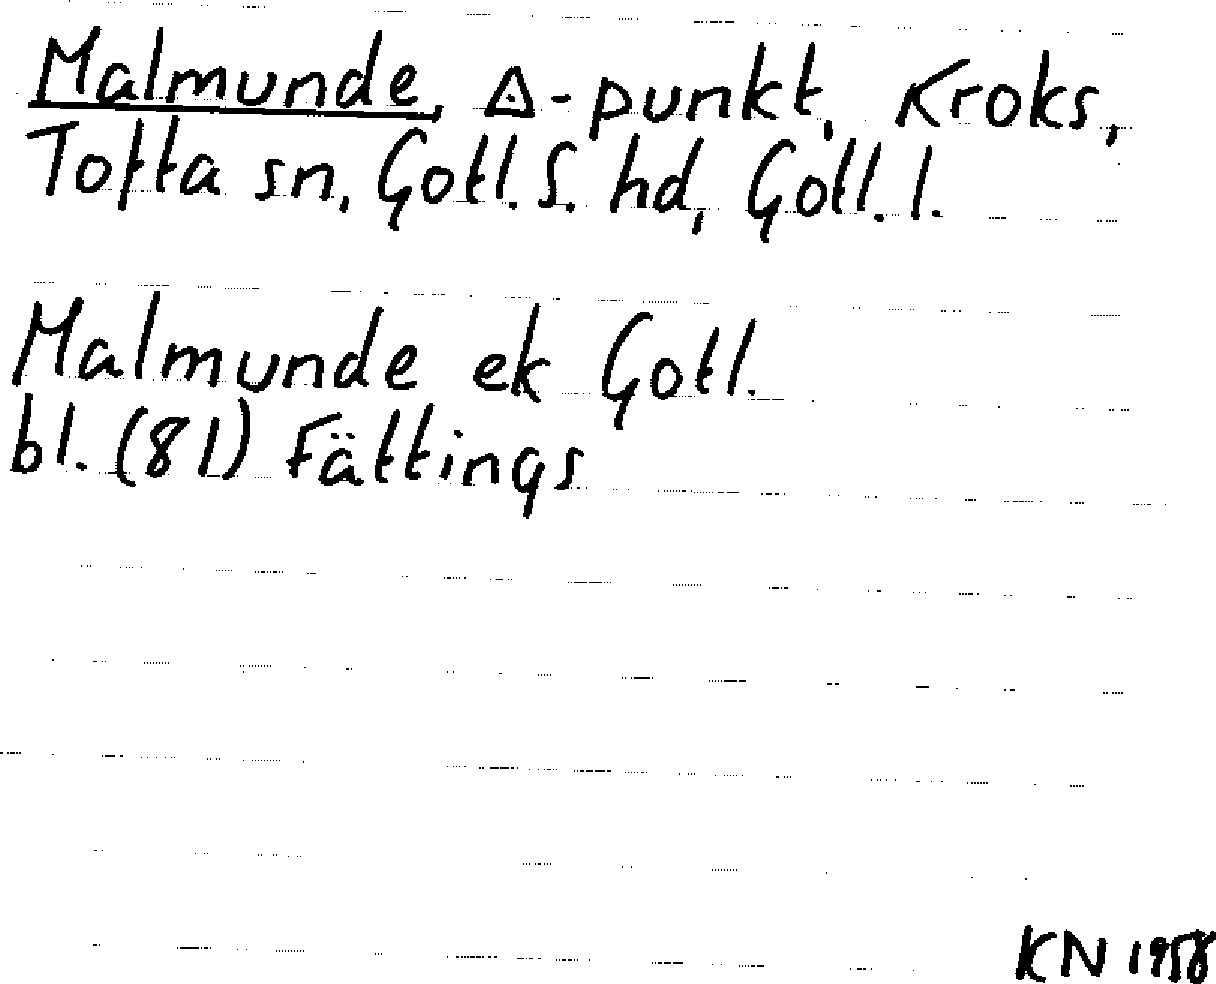 Malmunde, ⟁-punkt, Kroks,
Tofta sn, Gotl. S. hd, Gotl. l.
Malmunde ek Gotl.
bl. (81) Fättings
KN 1958